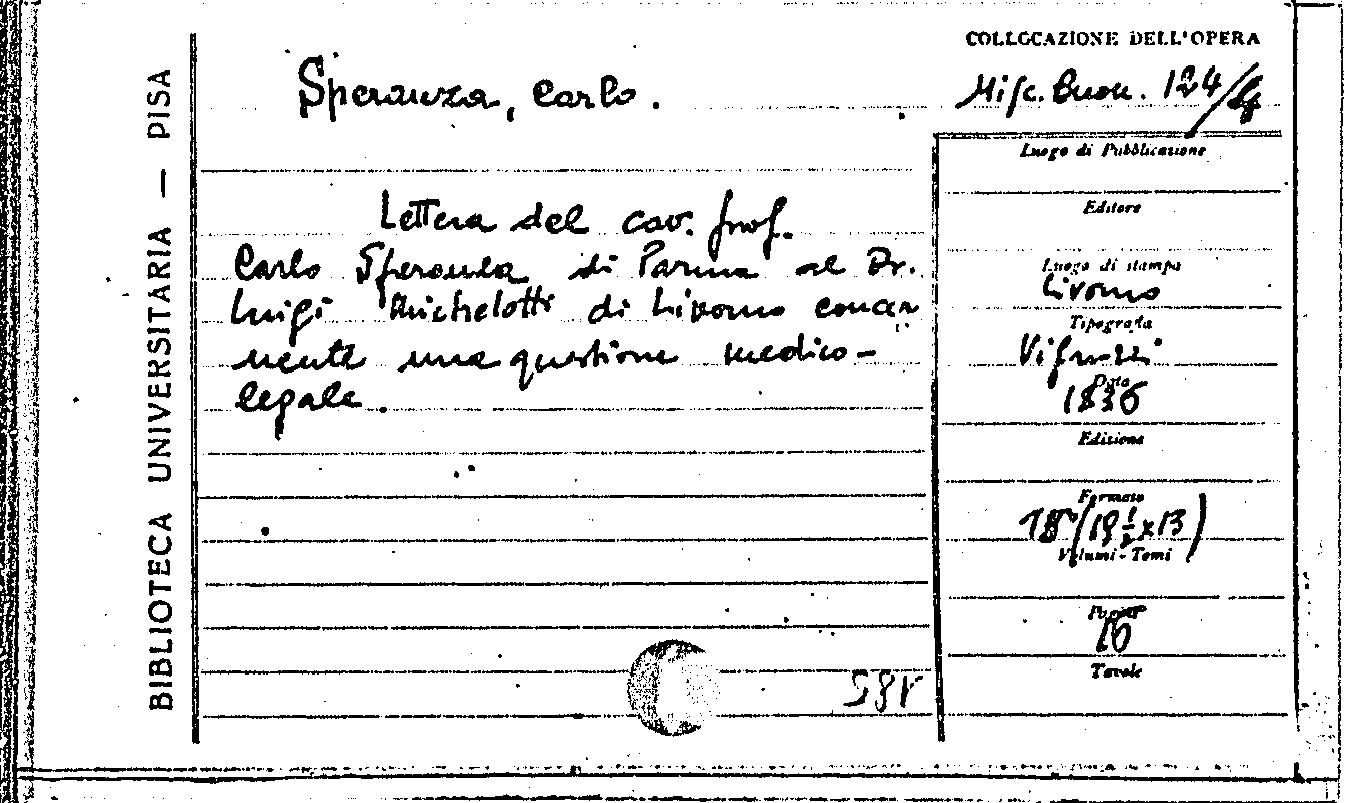 BIBLIOTECA UNIVERSITARIA — PISA
Speranza, Carlo.
Lettera del cav. prof.
Carlo Speranza di Parma al Dr.
Luigi Michelotti di Livorno concer
nente una questione medico-
legale.
COLLOCAZIONE DELL'OPERA
Misc. Buon. 124/
Luogo di Pubblicazione
Editore
Luogo di stampa
Livorno
Tipografia
Vignozzi
Data
1836
Edizione
Formato
(19 1/2 x 13)
Volumi - Tomi
Pagine
16
Tavole